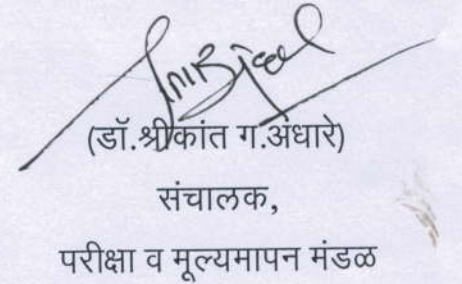 (डॉ.श्रीकांत ग.अंधारे)
संचालक,
परीक्षा व मूल्यमापन मंडळ